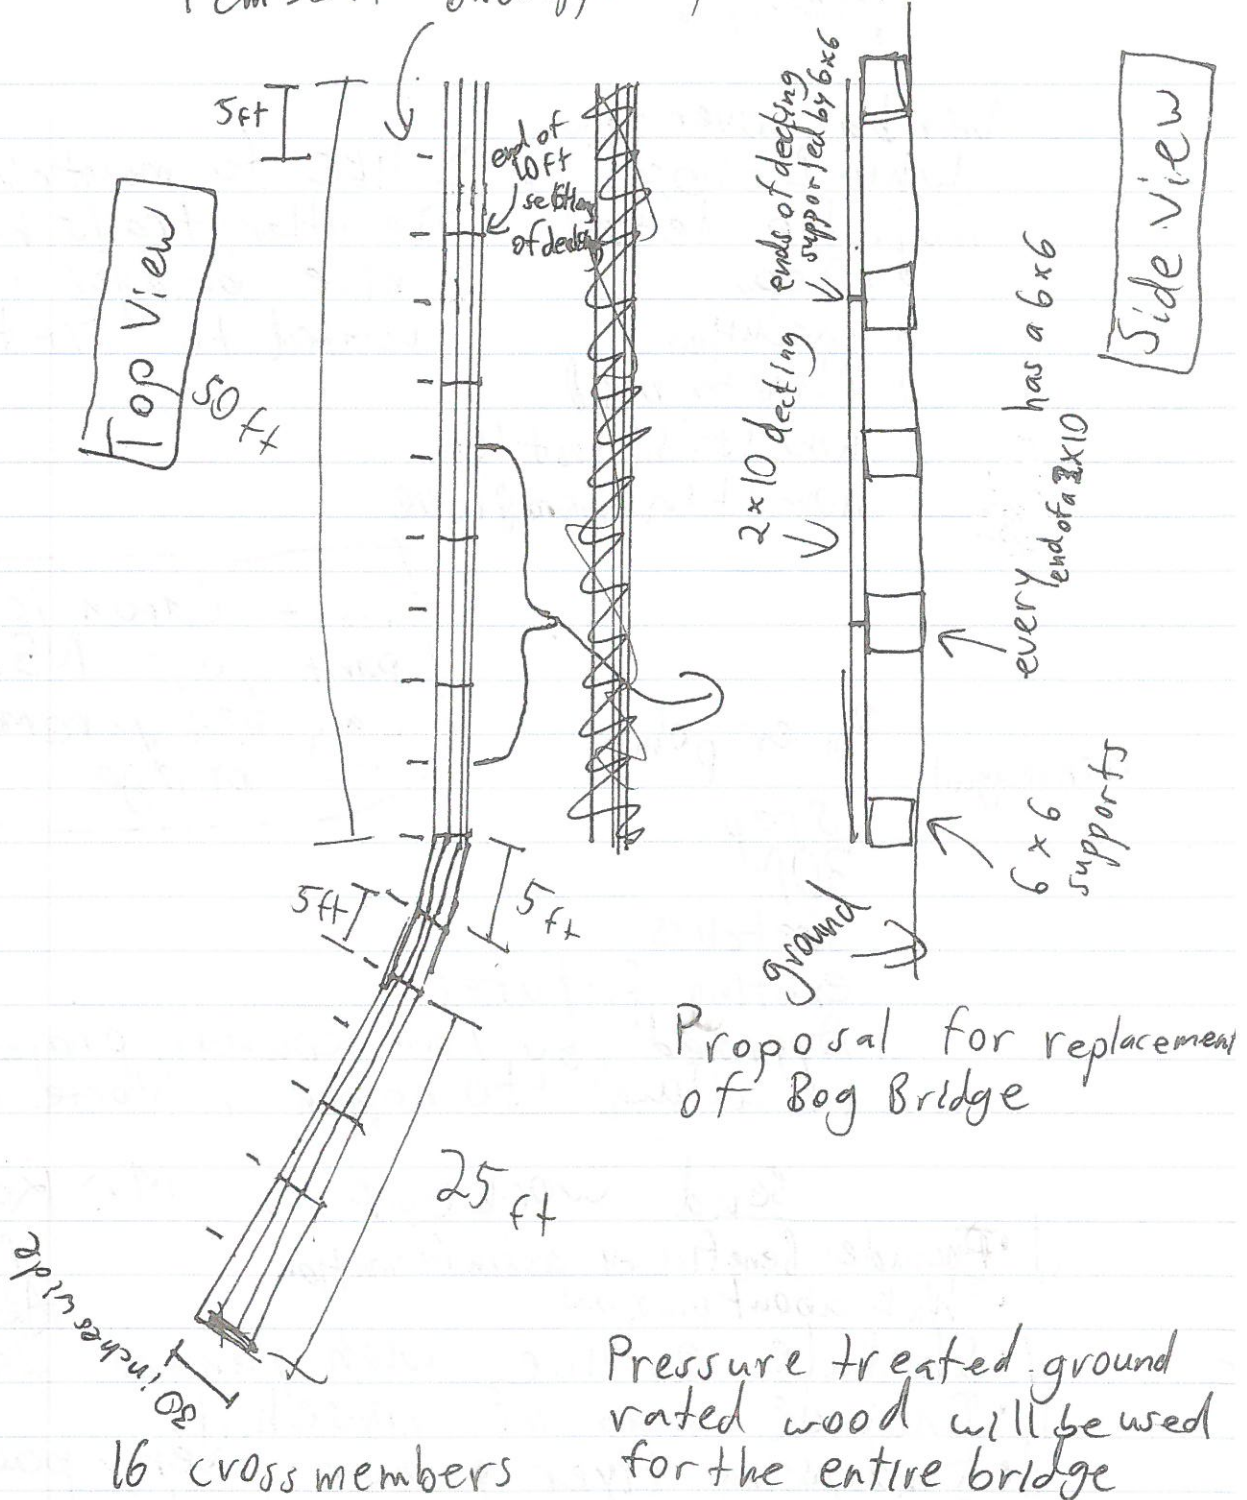 5ft
Top View
50 ft
end of
10ft
section
of decking
ends of decking
supported by 6x6
2 x 10 decking
Side View
every end of a 2x10 has a 6x6
6 x 6
supports
ground
5ft
5 ft
25 ft
30 inches wide
16 cross members
Proposal for replacement
of Bog Bridge
Pressure treated ground
rated wood will be used
for the entire bridge